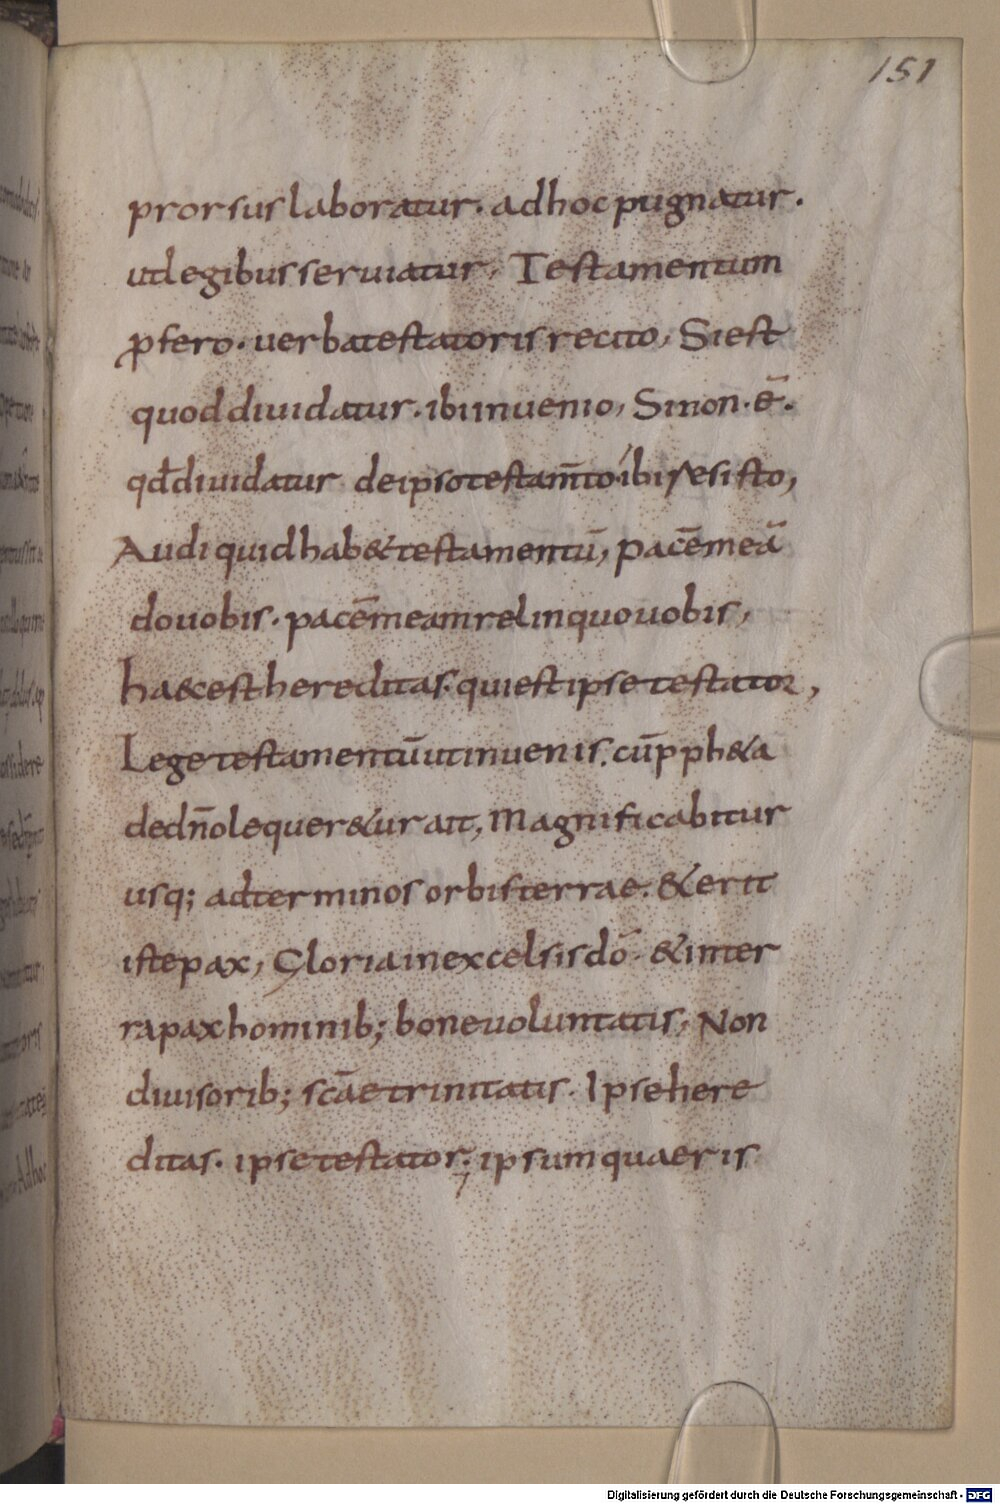 151
prorsus laboratur. ad hoc pugnatur.
ut legibus seruiatur, Testamentum
ꝓfero. uerba testatoris recito, Si est
quod diuidatur. ibi inuenio, Sinon. ē.
qđ diuidatur de ipso testam̄to ibi resisto,
Audi quid hab& testamentū, pacēmeā
do uobis. pacēmeam relinquo uobis,
ha&c est hereditas. qui est ipse testator,
Lege testamentū ut inuenis. cū pph&a
de dn̄o loquer&ur ait, Magnificabitur
usq; ad terminos orbis terrae. & erit
iste pax, Gloria in excelsis dō. & in ter
ra pax hominib; bone uoluntatis, Non
diuisorib; scāe trinitatis. Ipse here
ditas. ipse testator; ipsum quaeris
Digitalisierung gefördert durch die Deutsche Forschungsgemeinschaft - DFG